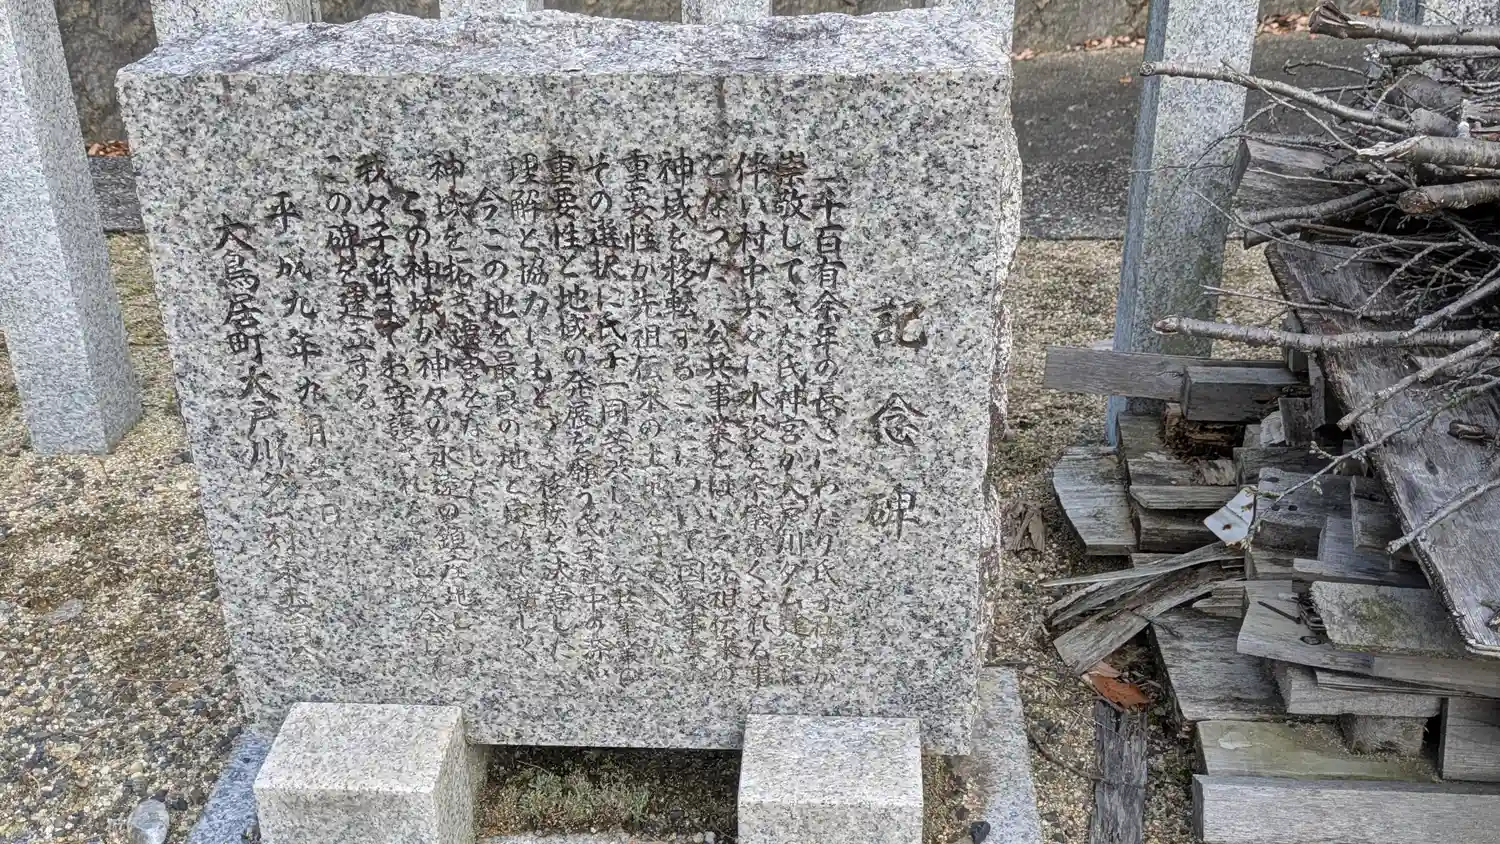 記念碑
一千百有余年の長きにわたり氏子社中が
崇敬してきた氏神宮が大戸川ダム建設に
伴い村中共々に水没を余儀なくされる事
となった 公共事業とはいえ先祖伝来の
神域を移転することについて国家事業の
重要性か先祖伝来の土地を守るべきか
その選択に氏子一同苦渋した 公共事業の
重要性と地域の発展を願う氏子社中の深い
理解と協力のもと 移転を決意した
今この地を最良の地と定めて新しく
神域を拓き遷宮をなした
この神域が神々の永遠の鎮座地として
我々子孫までお守護され ことを念じ
この碑を建立する
平成九年九月 日
大鳥居町大戸川ダム対策委員会